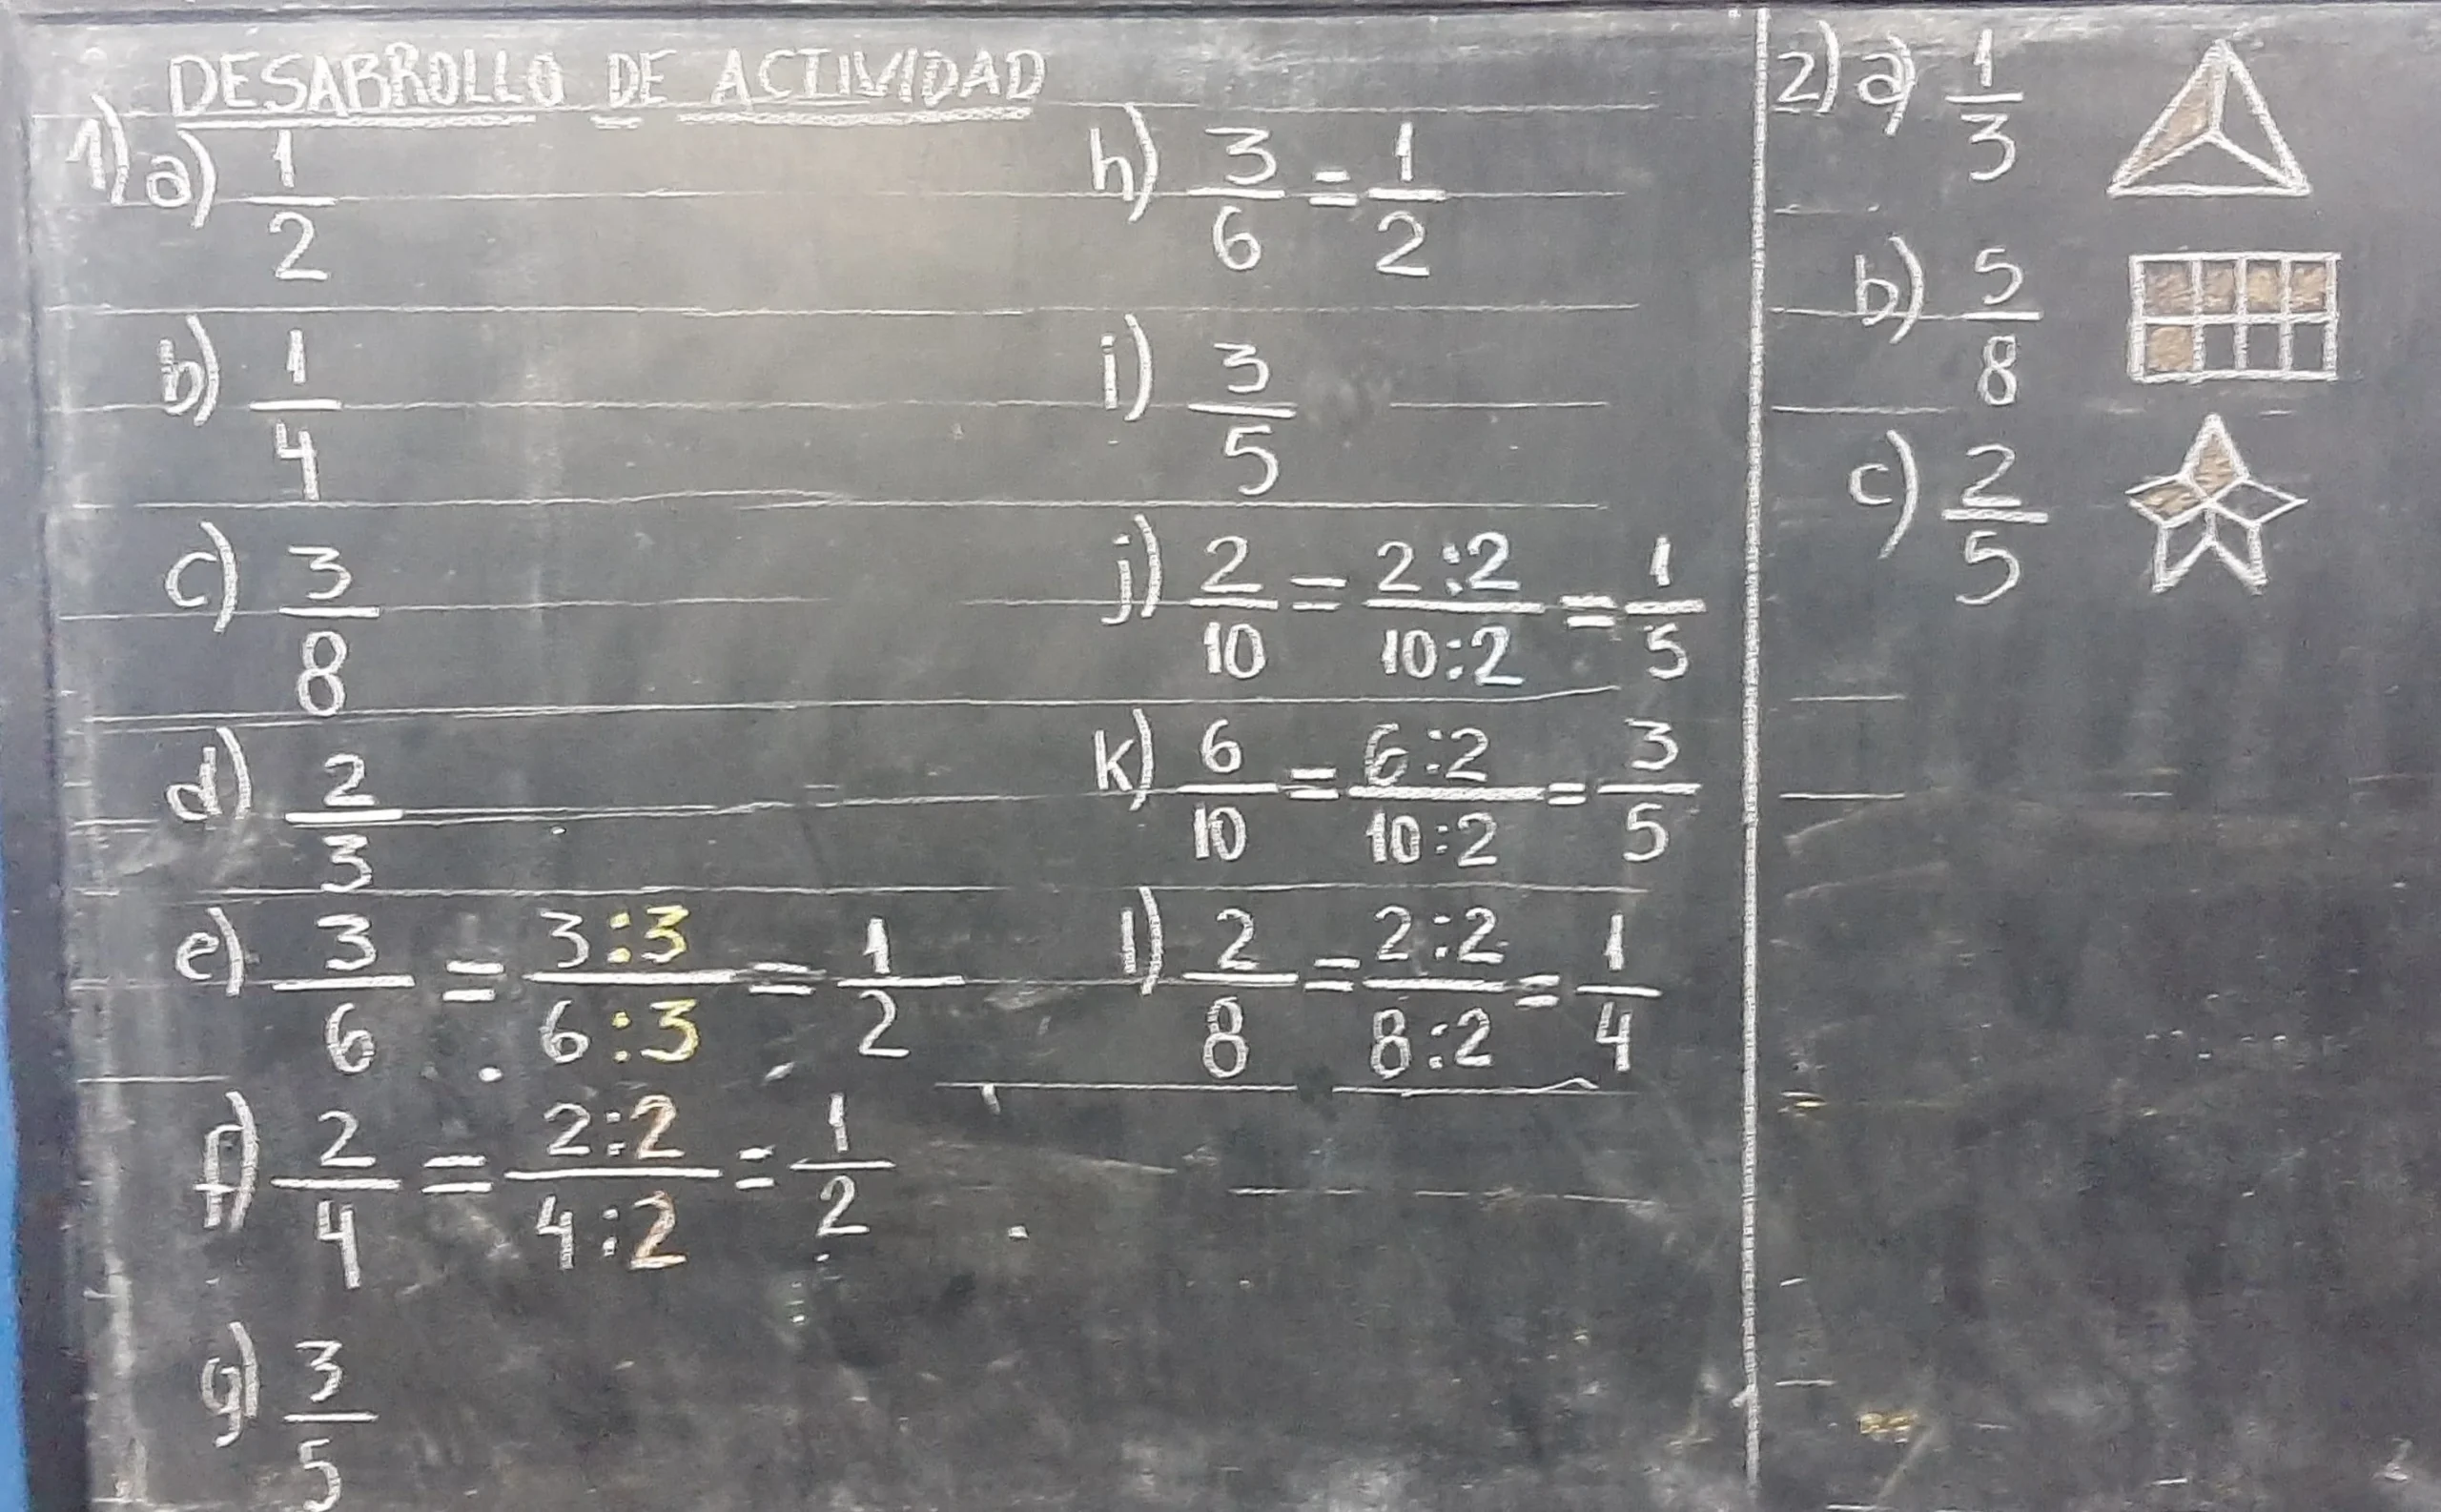 DESARROLLO DE ACTIVIDAD
1) a) 1/2
b) 1/4
c) 3/8
d) 2/3
e) 3/6 = 3:3/6:3 = 1/2
f) 2/4 = 2:2/4:2 = 1/2
g) 3/5
h) 3/6 = 1/2
i) 3/5
j) 2/10 = 2:2/10:2 = 1/5
k) 6/10 = 6:2/10:2 = 3/5
l) 2/8 = 2:2/8:2 = 1/4
2) a) 1/3
b) 5/8
c) 2/5